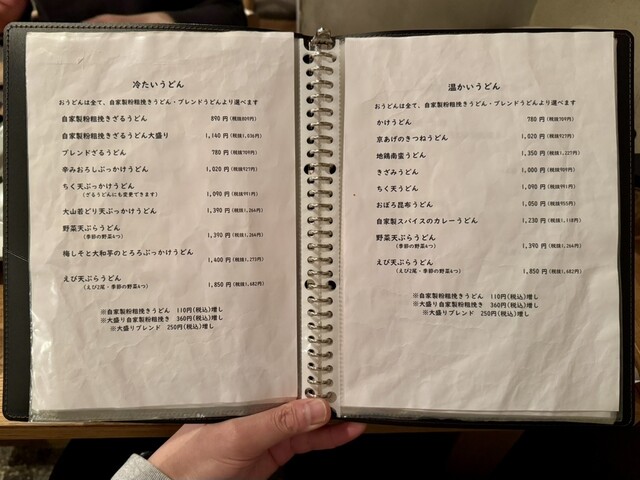 冷たいうどん
おうどんは全て、自家製粉粗挽きうどん・ブレンドうどんより選べます
自家製粉粗挽きざるうどん 890 円(税抜809円)
自家製粉粗挽きざるうどん大盛り 1,140 円(税抜1,036円)
ブレンドざるうどん 780 円(税抜709円)
辛みおろしぶっかけうどん 1,020 円(税抜927円)
ちく天ぶっかけうどん 1,090 円(税抜991円)
(ざるうどんにも変更できます)
大山若どり天ぶっかけうどん 1,390 円(税抜1,264円)
野菜天ぶらうどん 1,390 円(税抜1,264円)
(季節の野菜4つ)
梅しそと大和芋のとろろぶっかけうどん 1,400 円(税抜1,273円)
えび天ぷらうどん 1,850 円(税抜1,682円)
(えび2尾・季節の野菜4つ)
※自家製粉粗挽きうどん 110円(税込)増し
※大盛り自家製粉粗挽き 360円(税込)増し
※大盛りブレンド 250円(税込)増し
温かいうどん
おうどんは全て、自家製粉粗挽きうどん・ブレンドうどんより選べます
かけうどん 780 円(税抜709円)
京あげのきつねうどん 1,020 円(税抜927円)
地鶏南蛮うどん 1,350 円(税抜1,227円)
きざみうどん 1,000 円(税抜909円)
ちく天うどん 1,090 円(税抜991円)
おぼろ昆布うどん 1,050 円(税抜955円)
自家製スパイスのカレーうどん 1,230 円(税抜1,118円)
野菜天ぷらうどん 1,390 円(税抜1,264円)
(季節の野菜4つ)
えび天ぷらうどん 1,850 円(税抜1,682円)
(えび2尾・季節の野菜4つ)
※自家製粉粗挽きうどん 110円(税込)増し
※大盛り自家製粉粗挽き 360円(税込)増し
※大盛りブレンド 250円(税込)増し